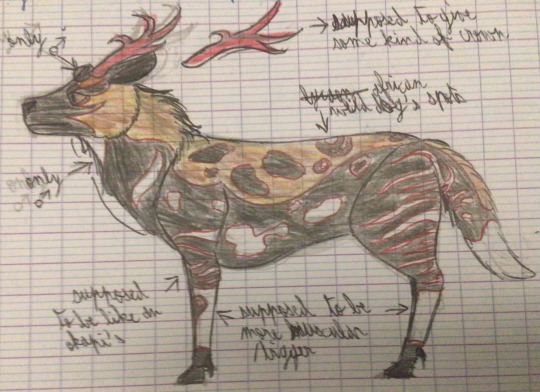 only ♂
→ supposed to give
some kind of crown
african
wild dog's spots
only
♂
supposed
to be like an
okapi's
supposed to be
more muscular
bigger